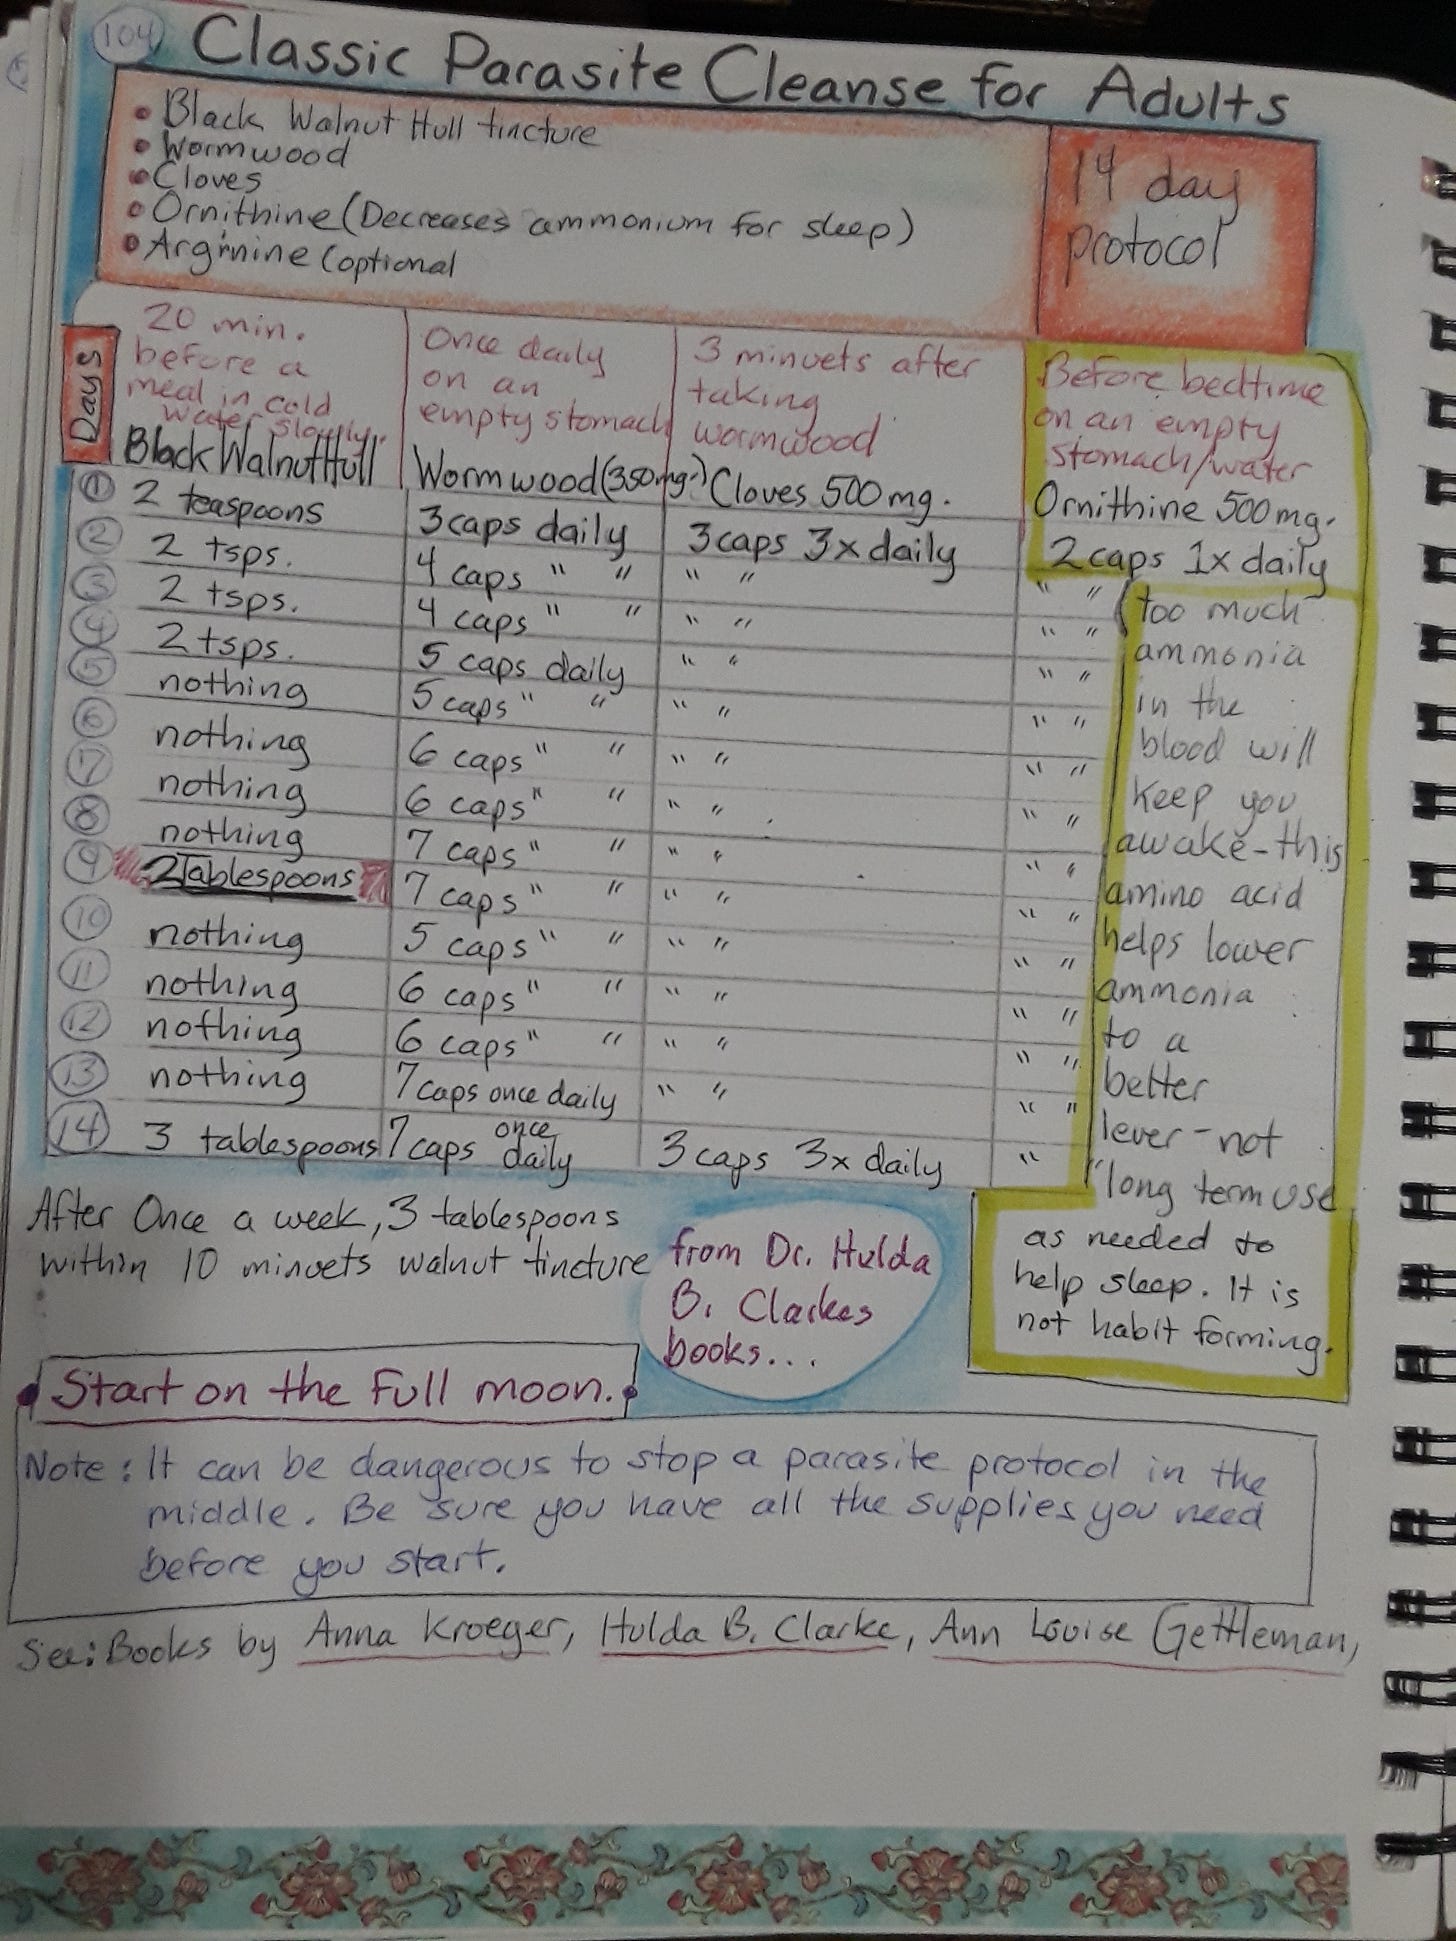 104 Classic Parasite Cleanse for Adults
• Black Walnut Hull tincture
• Wormwood
• Cloves
• Ornithine (Decreases ammonium for sleep)
• Arginine (optional
14 day
protocol
Days
20 min.
before a
meal in cold
water slowly.
Black Walnut Hull
Once daily
on an
empty stomach
Wormwood (350mg.)
3 minuets after
taking
wormwood
Cloves 500mg.
Before bedtime
on an empty
stomach/water
Ornithine 500mg.
1 2 teaspoons 3 caps daily 3 caps 3x daily 2 caps 1x daily
2 2 tsps. 4 caps " " " " " "
3 2 tsps. 4 caps " " " " " "
4 2 tsps. 5 caps daily " " " "
5 nothing 5 caps " " " " " "
6 nothing 6 caps " " " " " "
7 nothing 6 caps " " " " " "
8 nothing 7 caps " " " " " "
9 2 Tablespoons 7 caps " " " " " "
10 nothing 5 caps " " " " " "
11 nothing 6 caps " " " " " "
12 nothing 6 caps " " " " " "
13 nothing 7 caps once daily " " " "
14 3 tablespoons 7 caps once daily 3 caps 3x daily " "
(too much
ammonia
in the
blood will
keep you
awake-this
amino acid
helps lower
ammonia
to a
better
lever-not
long term use
as needed to
help sleep. It is
not habit forming.
After Once a week, 3 tablespoons
within 10 minuets walnut tincture
from Dr. Hulda
B. Clarkes
books...
• Start on the Full moon. •
Note: It can be dangerous to stop a parasite protocol in the
middle. Be sure you have all the supplies you need
before you start.
See: Books by Anna Kroeger, Hulda B. Clarke, Ann Louise Gettleman,